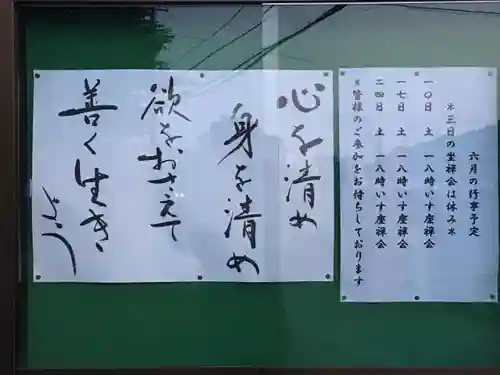 六月の行事予定
＊三日の坐禅会は休み＊
一〇日　土　一八時いす座禅会
一七日　土　一八時いす座禅会
二四日　土　一八時いす座禅会
＊皆様のご参加をお待ちしております
心を清め
身を清め
欲をおさえて
善く生き
よう